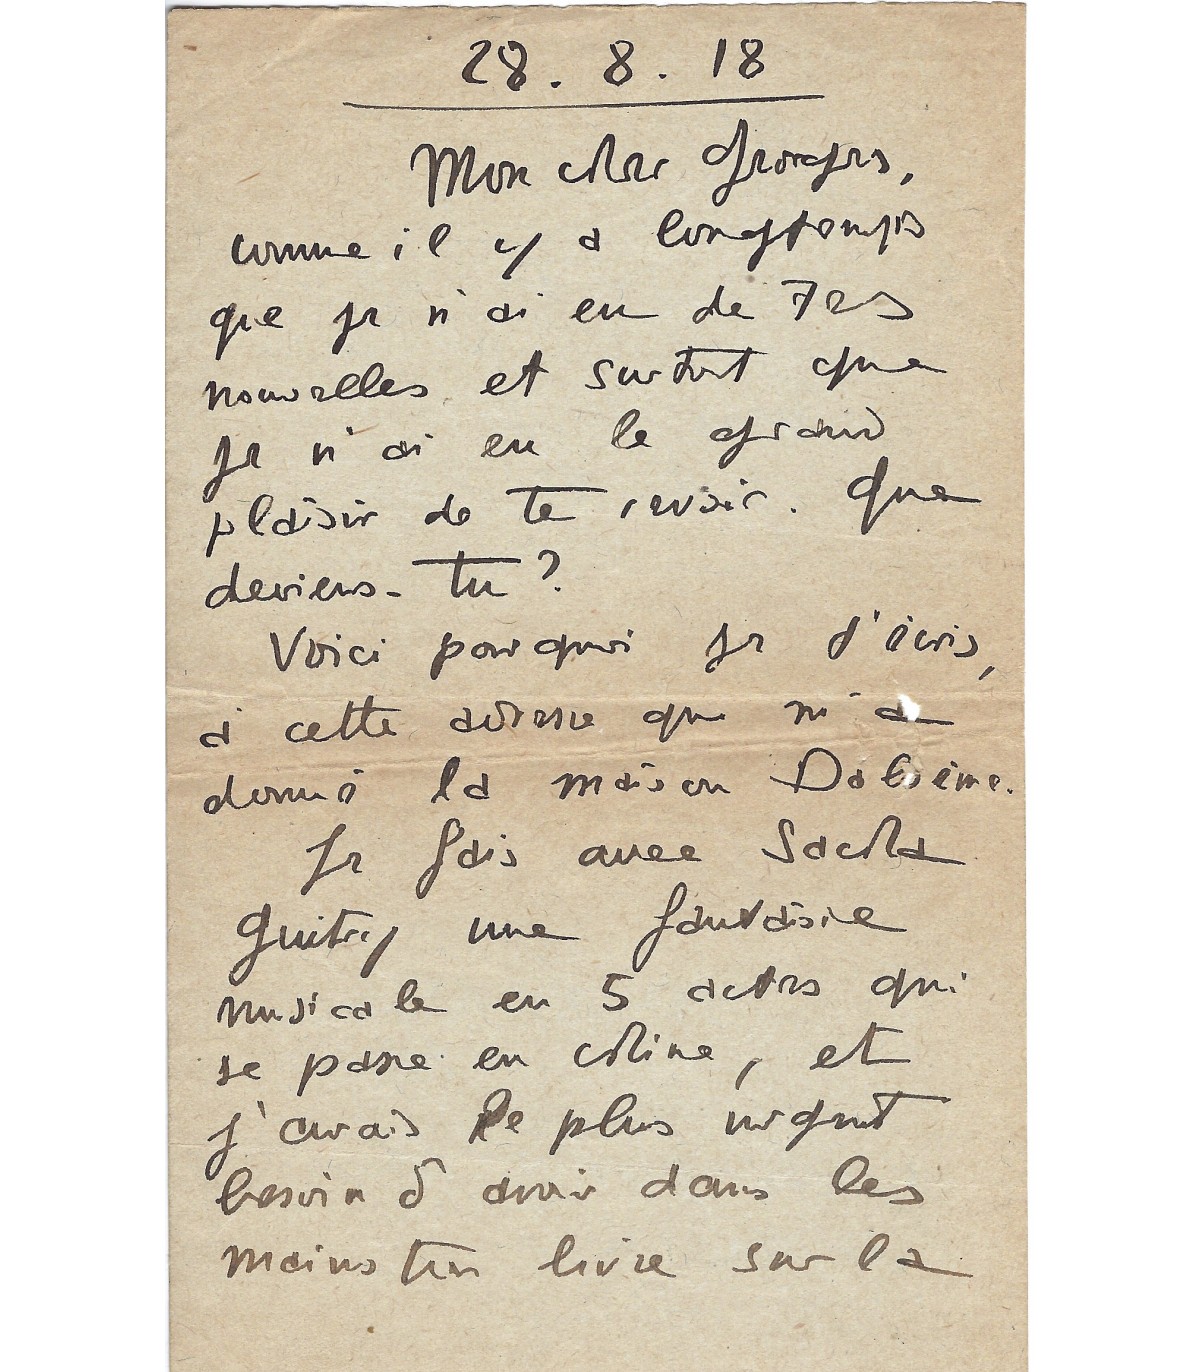 28.8.18
Mon cher Georges,
comme il y a longtemps
que je n'ai eu de tes
nouvelles et surtout que
je n'ai eu le grand
plaisir de te revoir. Que
deviens-tu?
Voici pourquoi je t'écris,
à cette adresse que m'a
donné la maison
Je fais avec Sacha
Guitry une fantaisie
musicale en 5 actes qui
se passe en Chine, et
j'avais le plus urgent
besoin d'avoir dans les
mains ton livre sur la